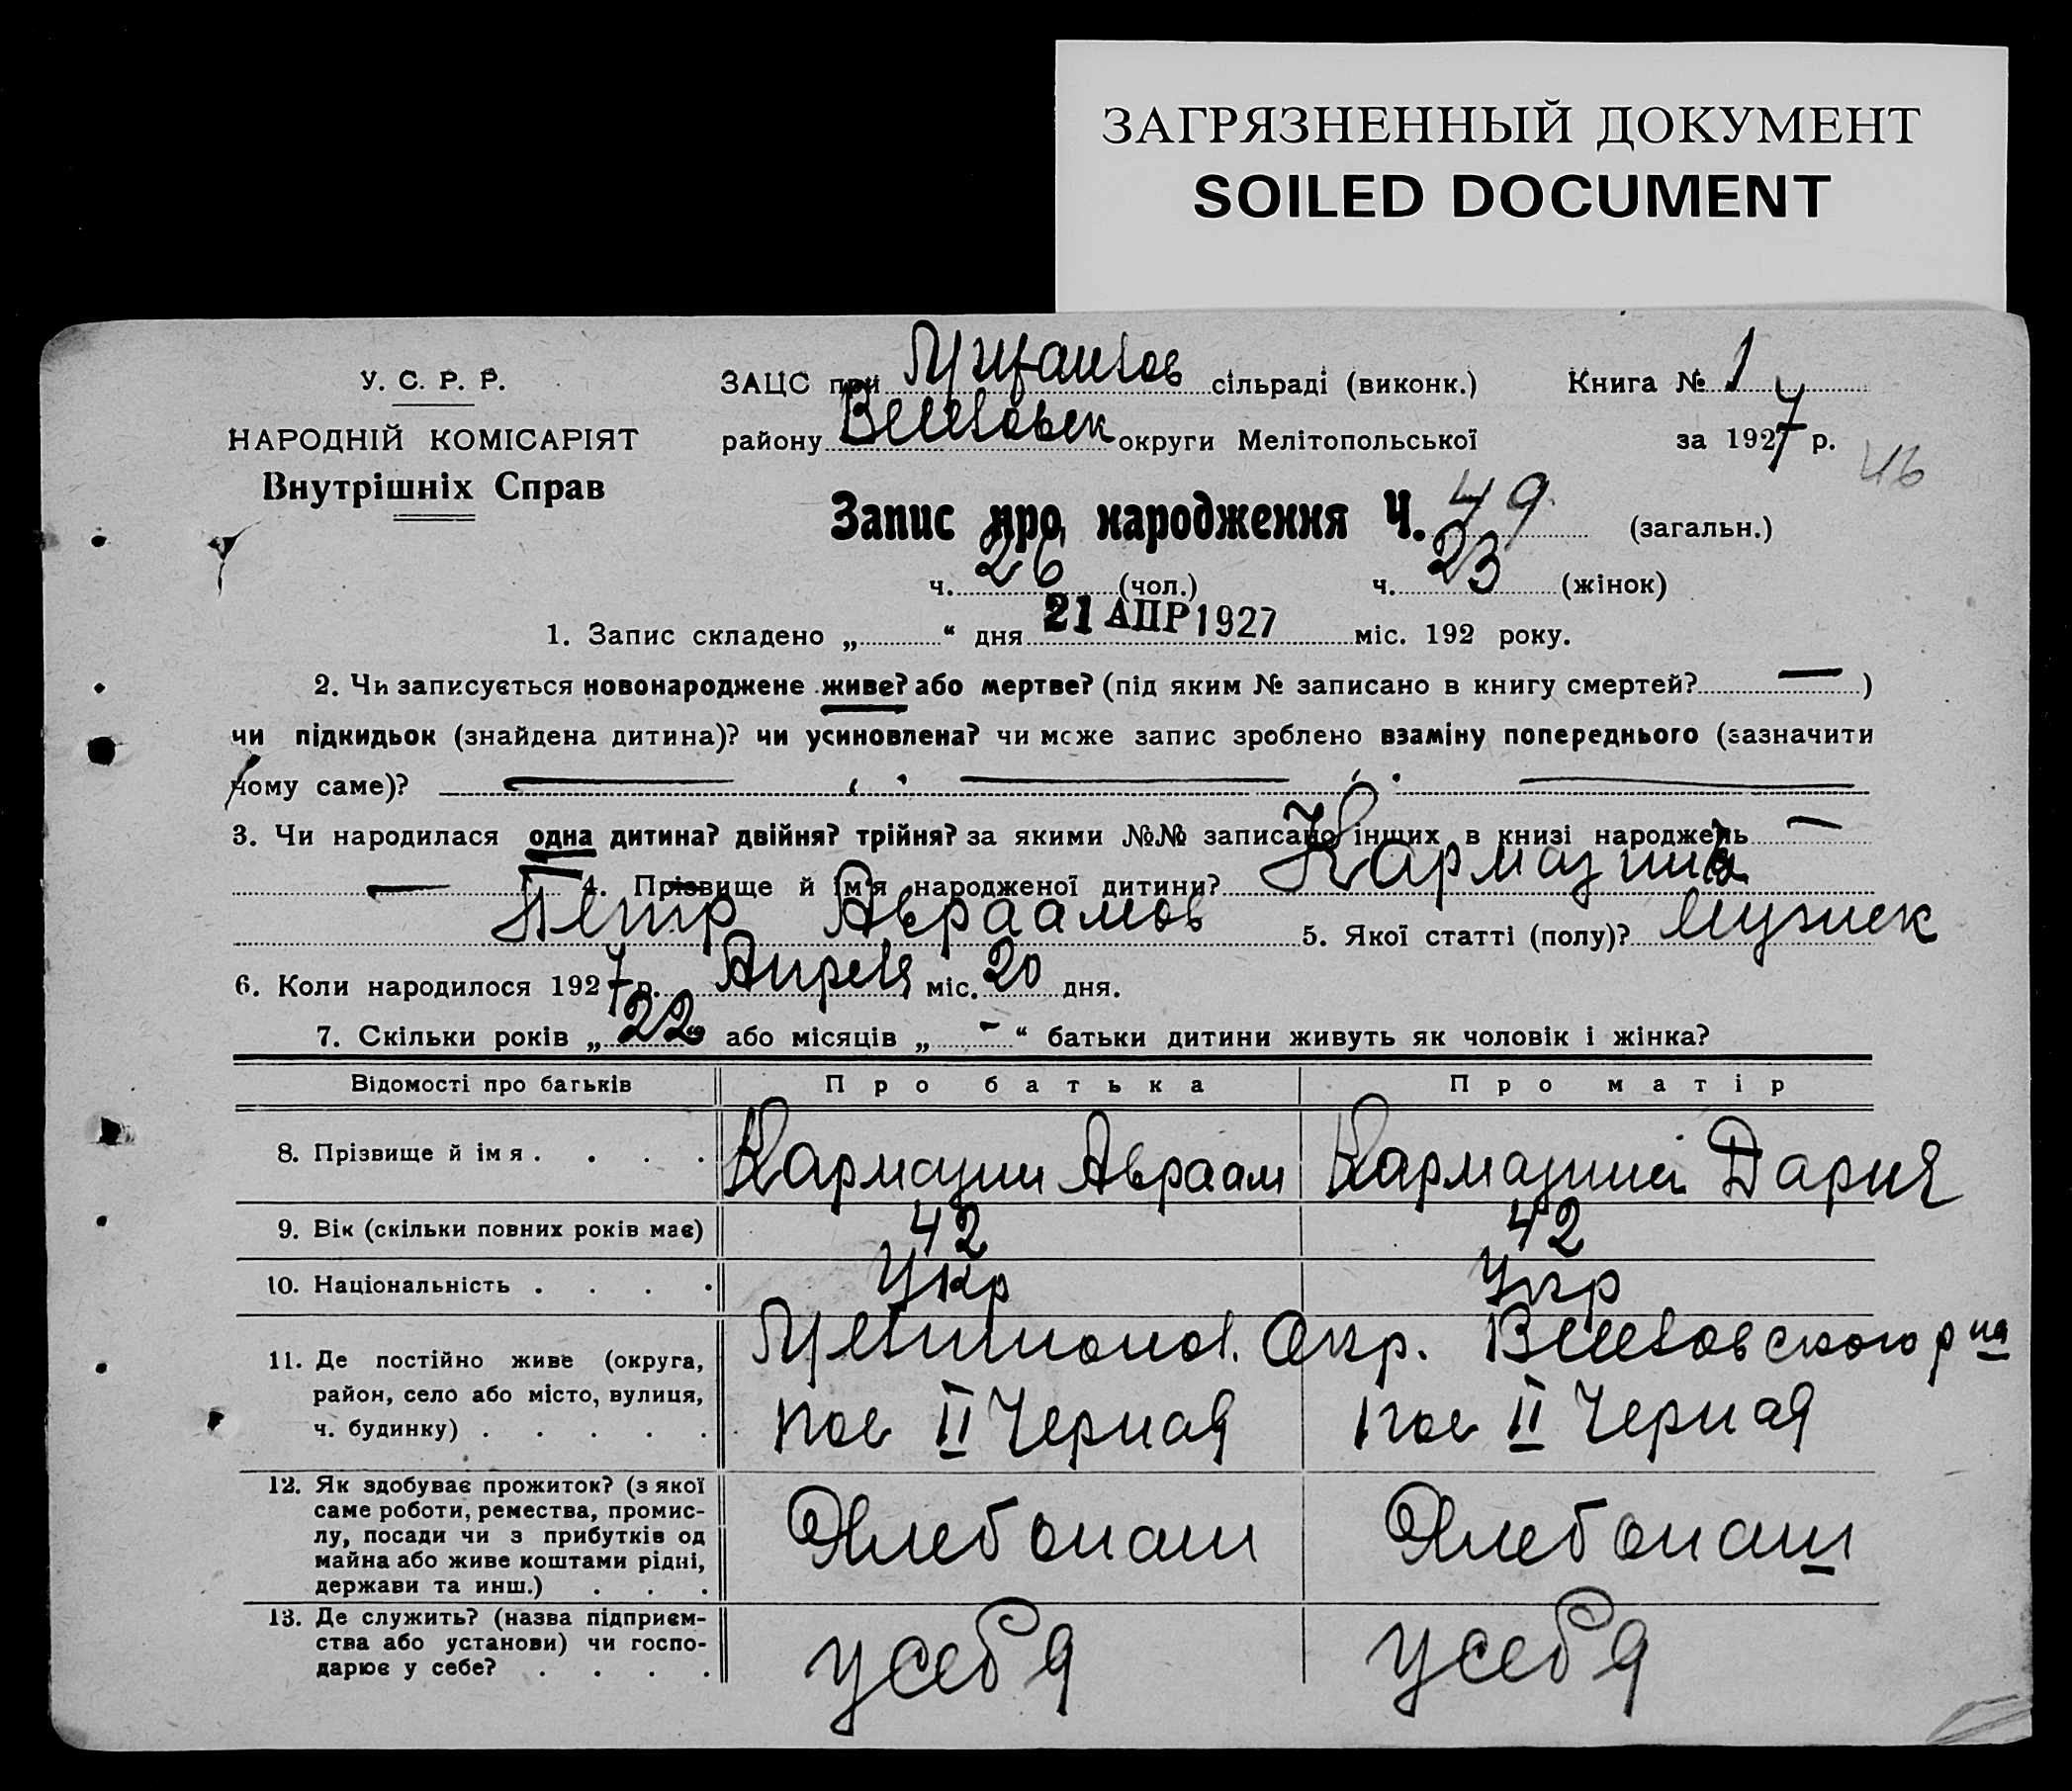 ЗАГРЯЗНЕННЫЙ ДОКУМЕНТ
SOILED DOCUMENT
У. С. Р. Р.
НАРОДНІЙ КОМІСАРІЯТ
Внутрішніх Справ
ЗАЦС при сільраді (виконк.) Книга № 1
району Веселовск округи Мелітопольської за 1927 р.
46
Запис про народження Ч. 49 (загальн.)
ч. 26 (чол.) ч. 23 (жінок)
1. Запис складено „ “ дня 21 АПР 1927 міс. 192 року.
2. Чи записується новонароджене живе? або мертве? (під яким № записано в книгу смертей? — )
чи підкидьок (знайдена дитина)? чи усиновлена? чи може запис зроблено взаміну попереднього (зазначити
чому саме)? — — —
3. Чи народилася одна дитина? двійня? трійня? за якими №№ записано інших в книзі народжень —
— 4. Прізвище й ім'я народженої дитини? Кармазин
Петр Авраамов 5. Якої статті (полу)? Мужск
6. Коли народилося 1927 р. Апреля міс. 20 дня.
7. Скільки років „ 22 або місяців „ - “ батьки дитини живуть як чоловік і жінка?
Відомості про батьків Про батька Про матір
8. Прізвище й ім я . . . . Кармазин Авраам Кармазина Дария
9. Вік (скільки повних років має) 42 42
10. Національність . . . . Укр Укр
11. Де постійно живе (округа, район, село або місто, вулиця, ч. будинку) . . . . . Мелитопол. Окр. Веселовского р на
пос II Черная пос II Черная
12. Як здобуває прожиток? (з якої саме роботи, ремества, промислу, посади чи з прибутків од майна або живе коштами рідні, держави та инш.) . . . Хлебопаш Хлебопаш
13. Де служить? (назва підприємства або установи) чи господарює у себе? . . . . у себя у себя